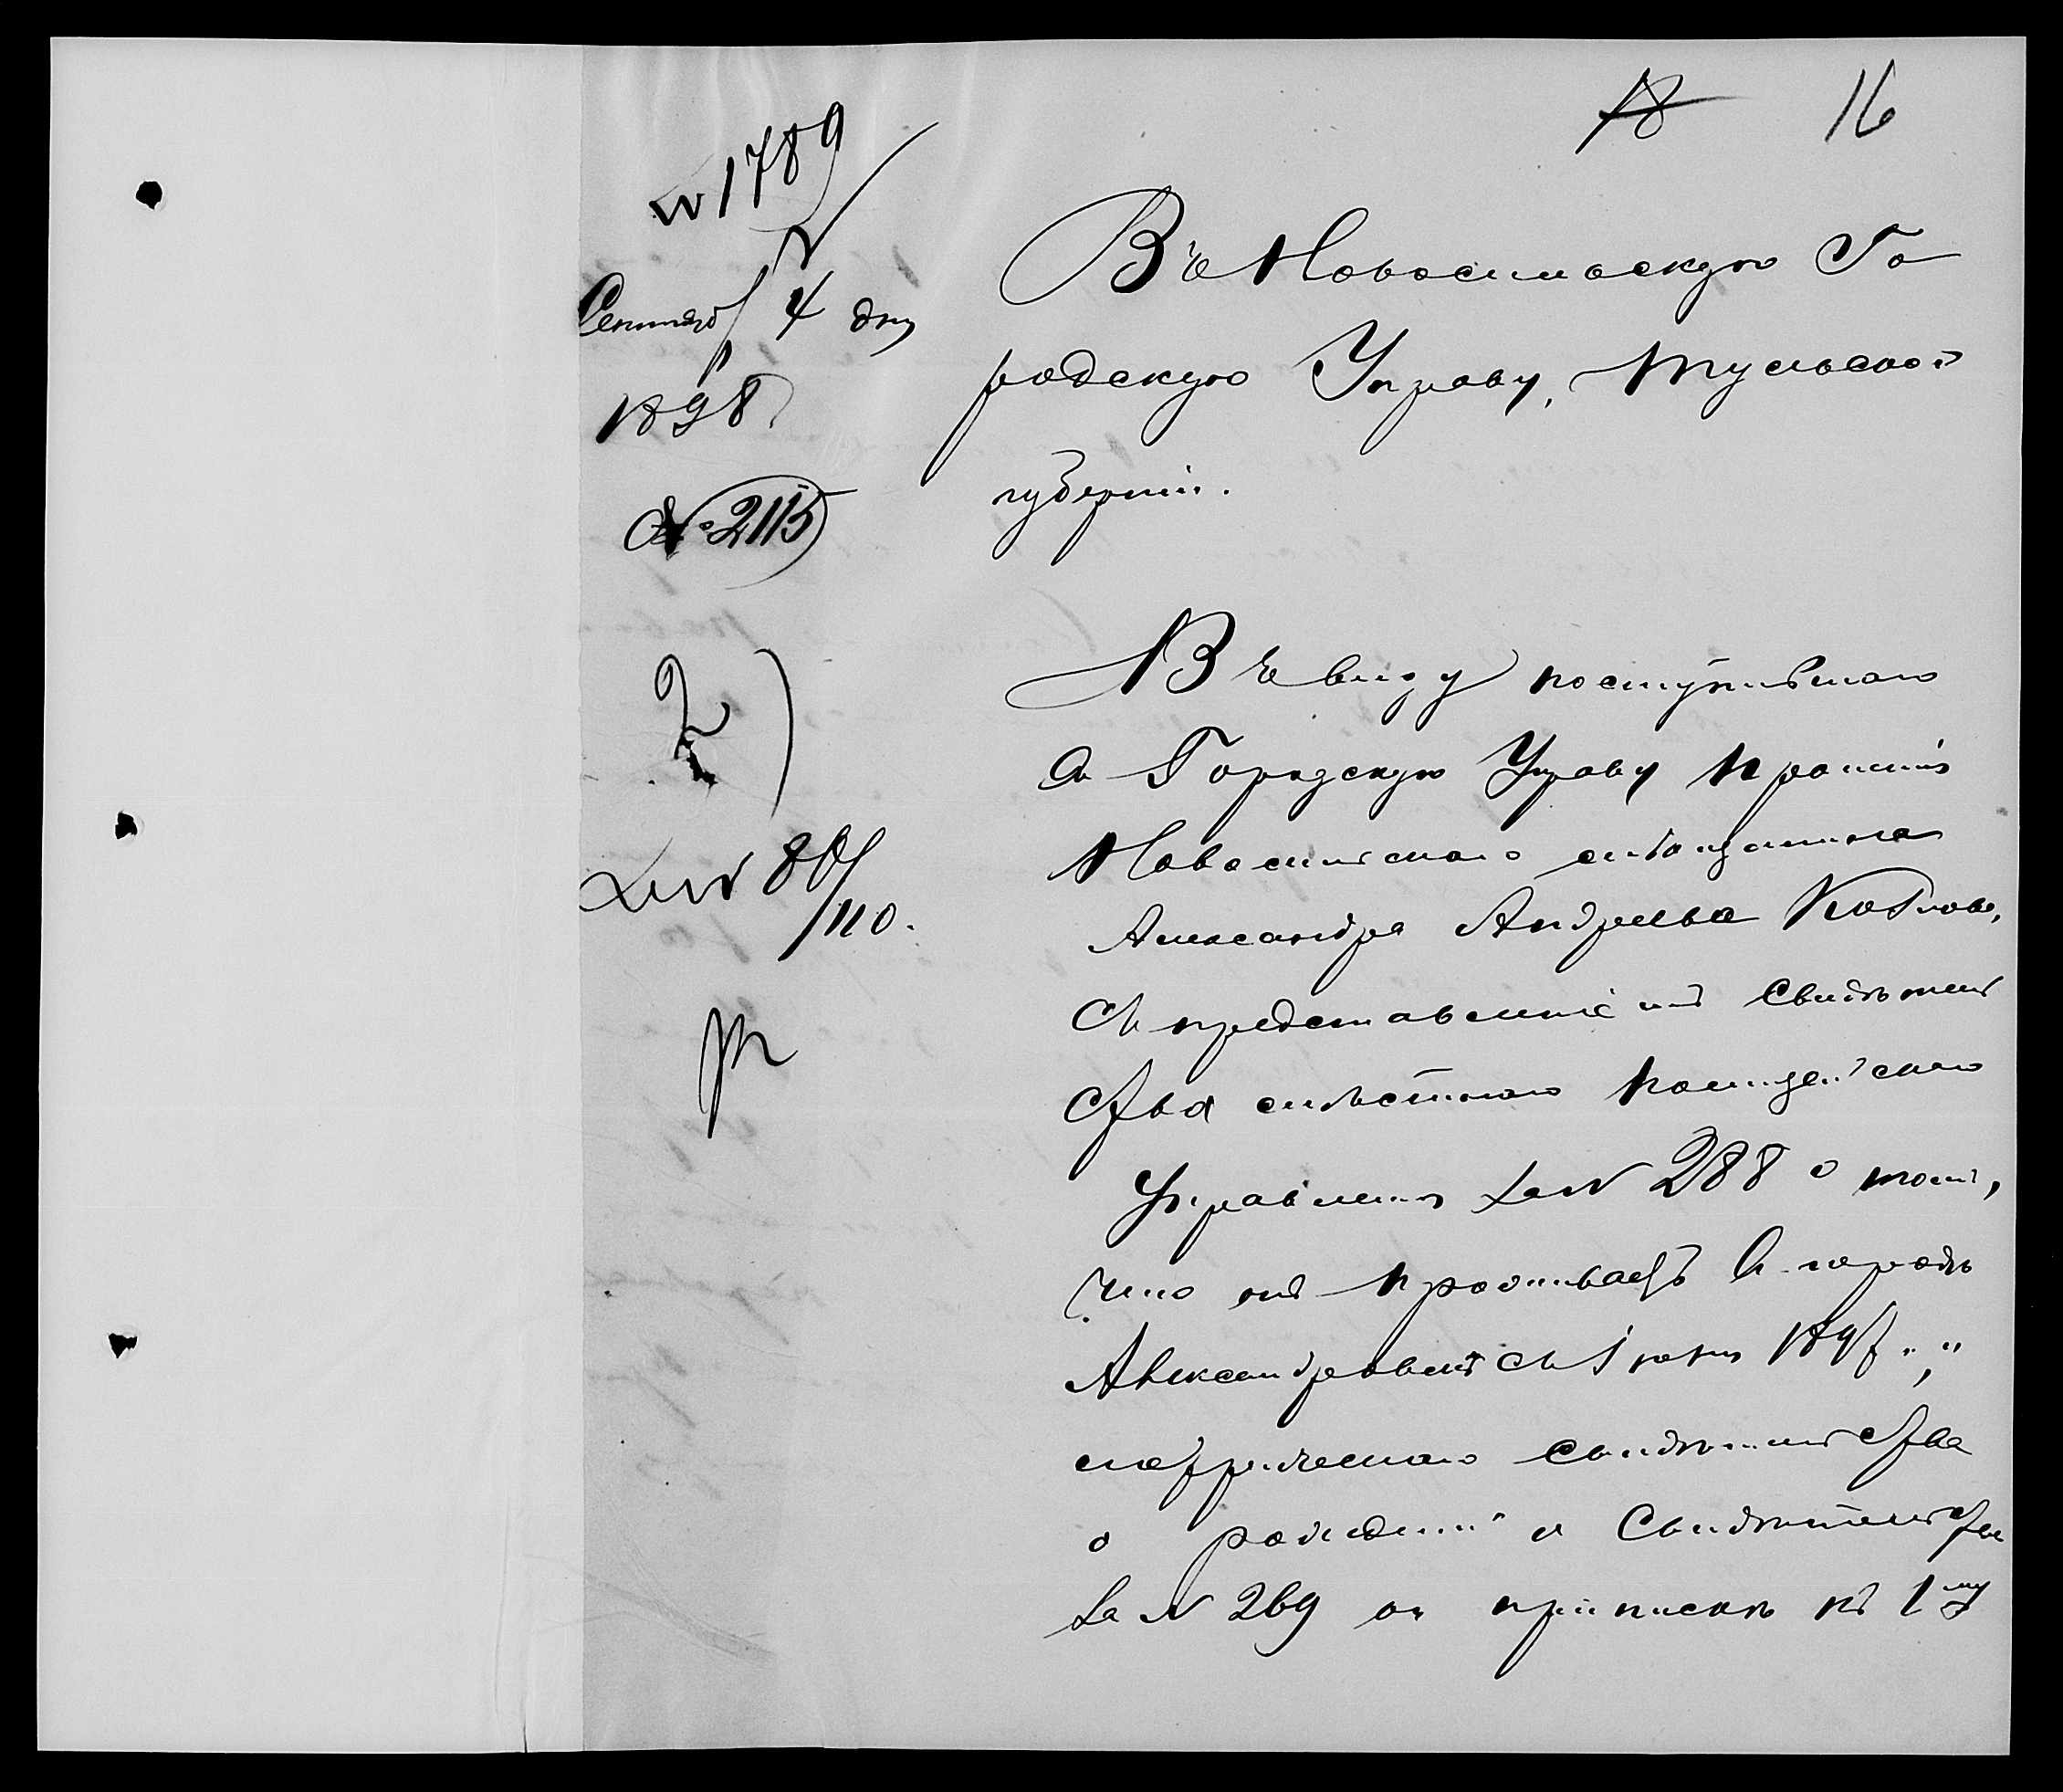 18 16
№ 1789
Сентяб 4 дня
1898
№ 2115
2)
110.
Въ Новосильскую Го
родскую Управу, Тульской
губерніи.
Въ виду поступившаго
въ Городскую Управу прошенія
Новосильскаго мѣщанина
Александра Андреева
съ представленіемъ свидѣтель
ства мѣстнаго Полицейскаго
Управленія за № 288 о томъ,
что онъ проживаетъ въ городѣ
Александровскѣ съ
метрическаго свидѣтельства
о рожденіи и свидѣтельства
за № 269 о припискѣ къ 1му